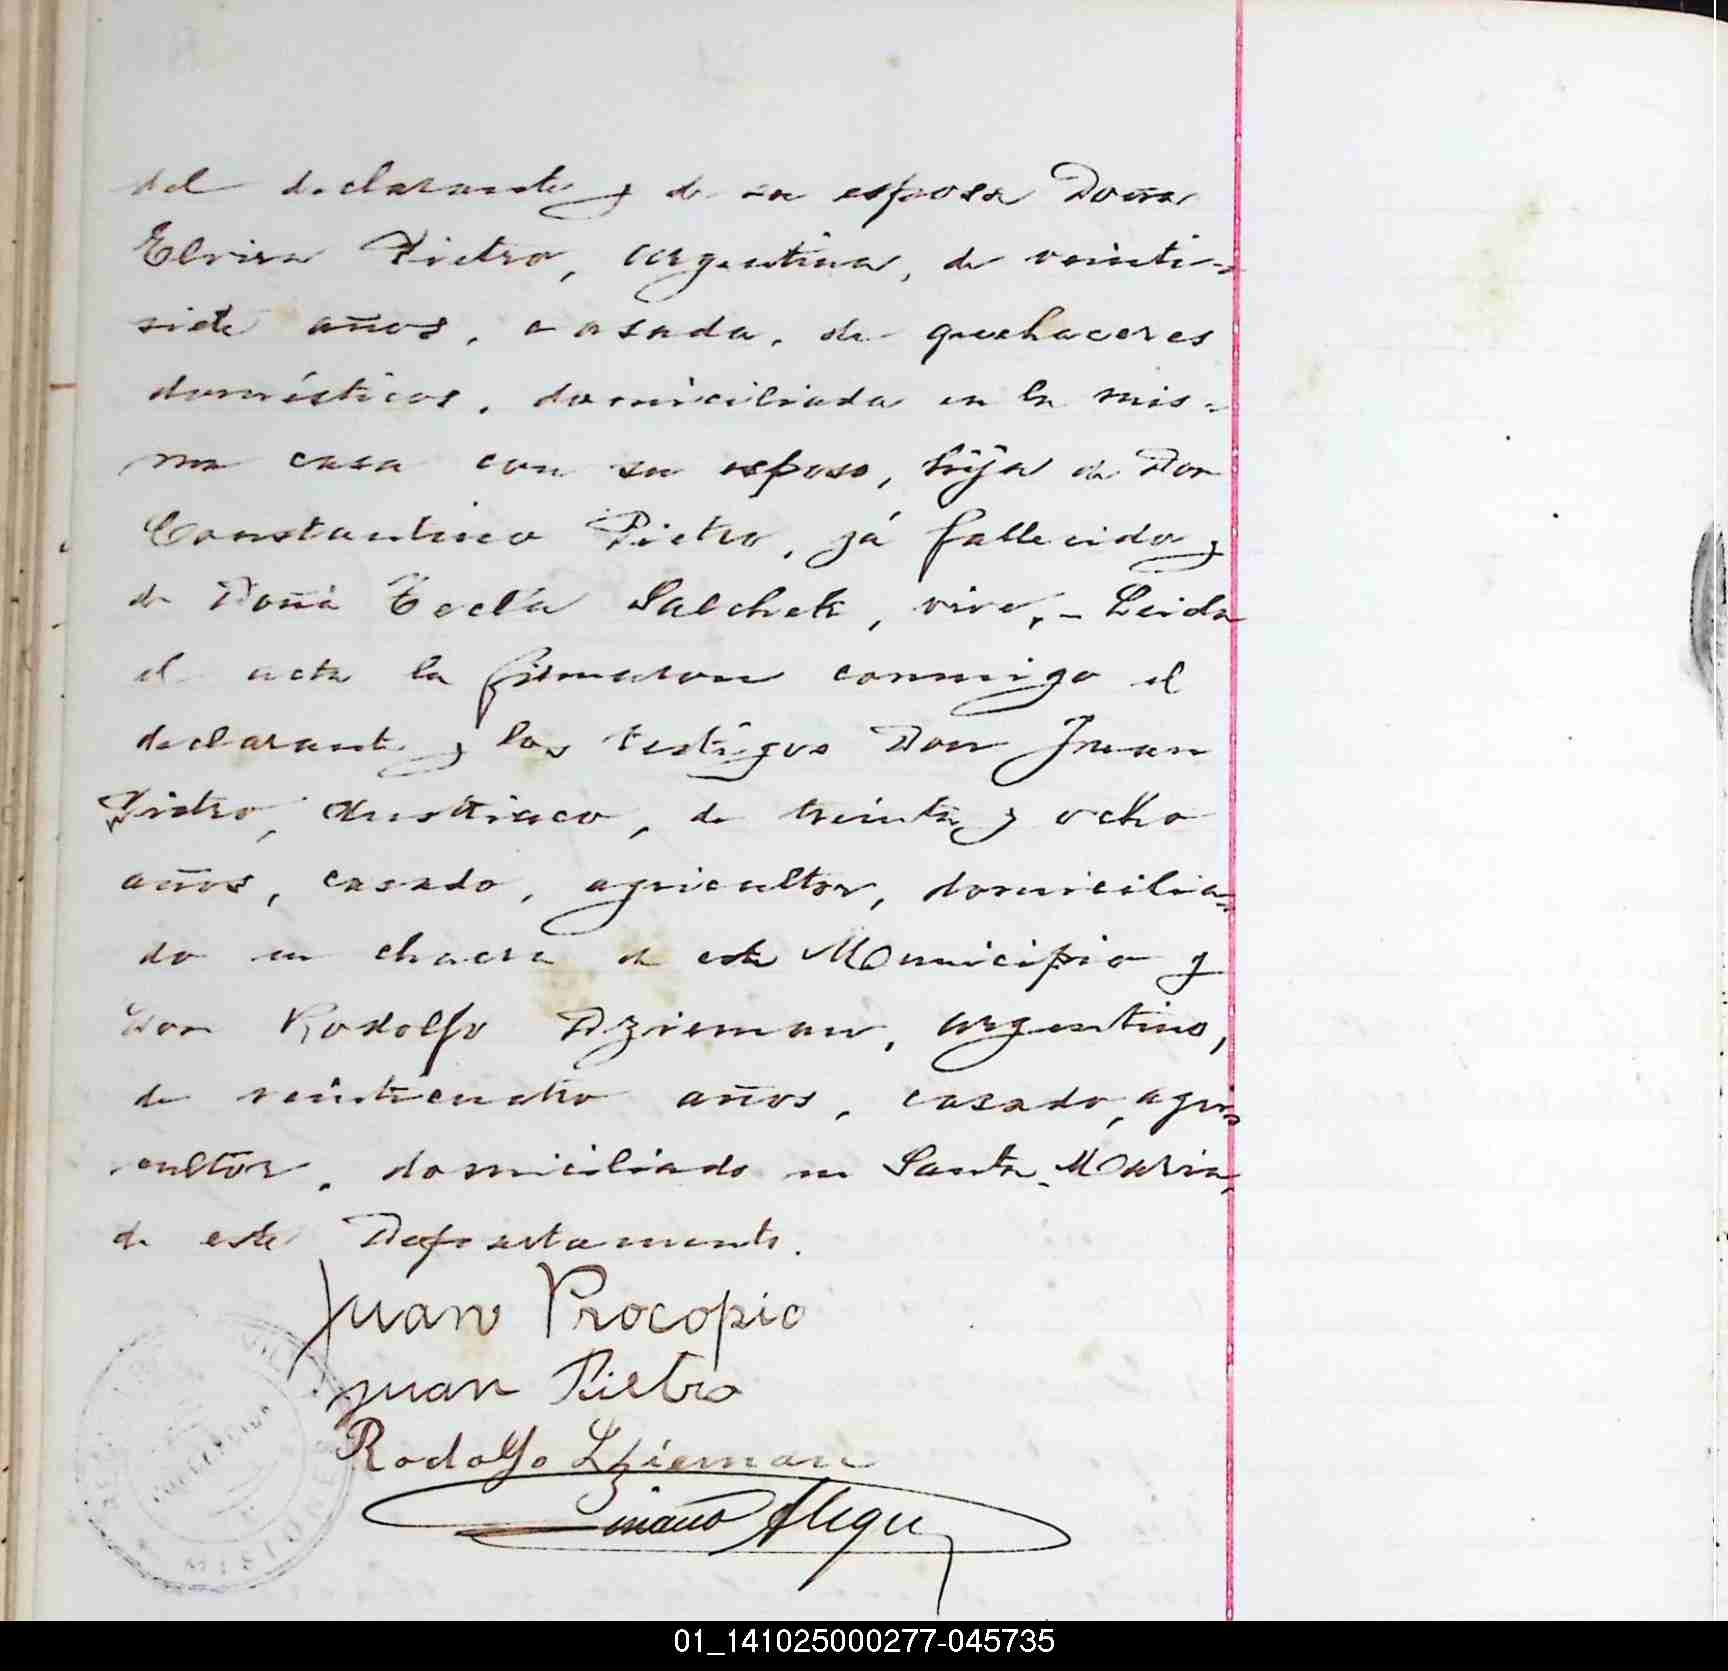 del declarante y de su esposa Doña
Elvira Pietro, argentina, de veinti-
siete años, casada, de quehaceres
domésticos, domiciliada en la mis-
ma casa con su esposo, hija de Don
Constantino Pietro, já fallecido y
de Doña Tecla Salchek, vive, - Leida
el acta la firmaron conmigo el
declarante y los testigos Don Juan
Pietro, Austriaco, de treinta y ocho
años, casado, agricultor, domicilia-
do en chacra de este Municipio y
Don Rodolfo Dzieman, argentino,
de veinticuatro años, casado, agri-
cultor, domiciliado en Santa Maria,
de este Departamento.
Juan Procopio
Juan Pietro
Rodolfo Dzieman
MISIONES
01_141025000277-045735